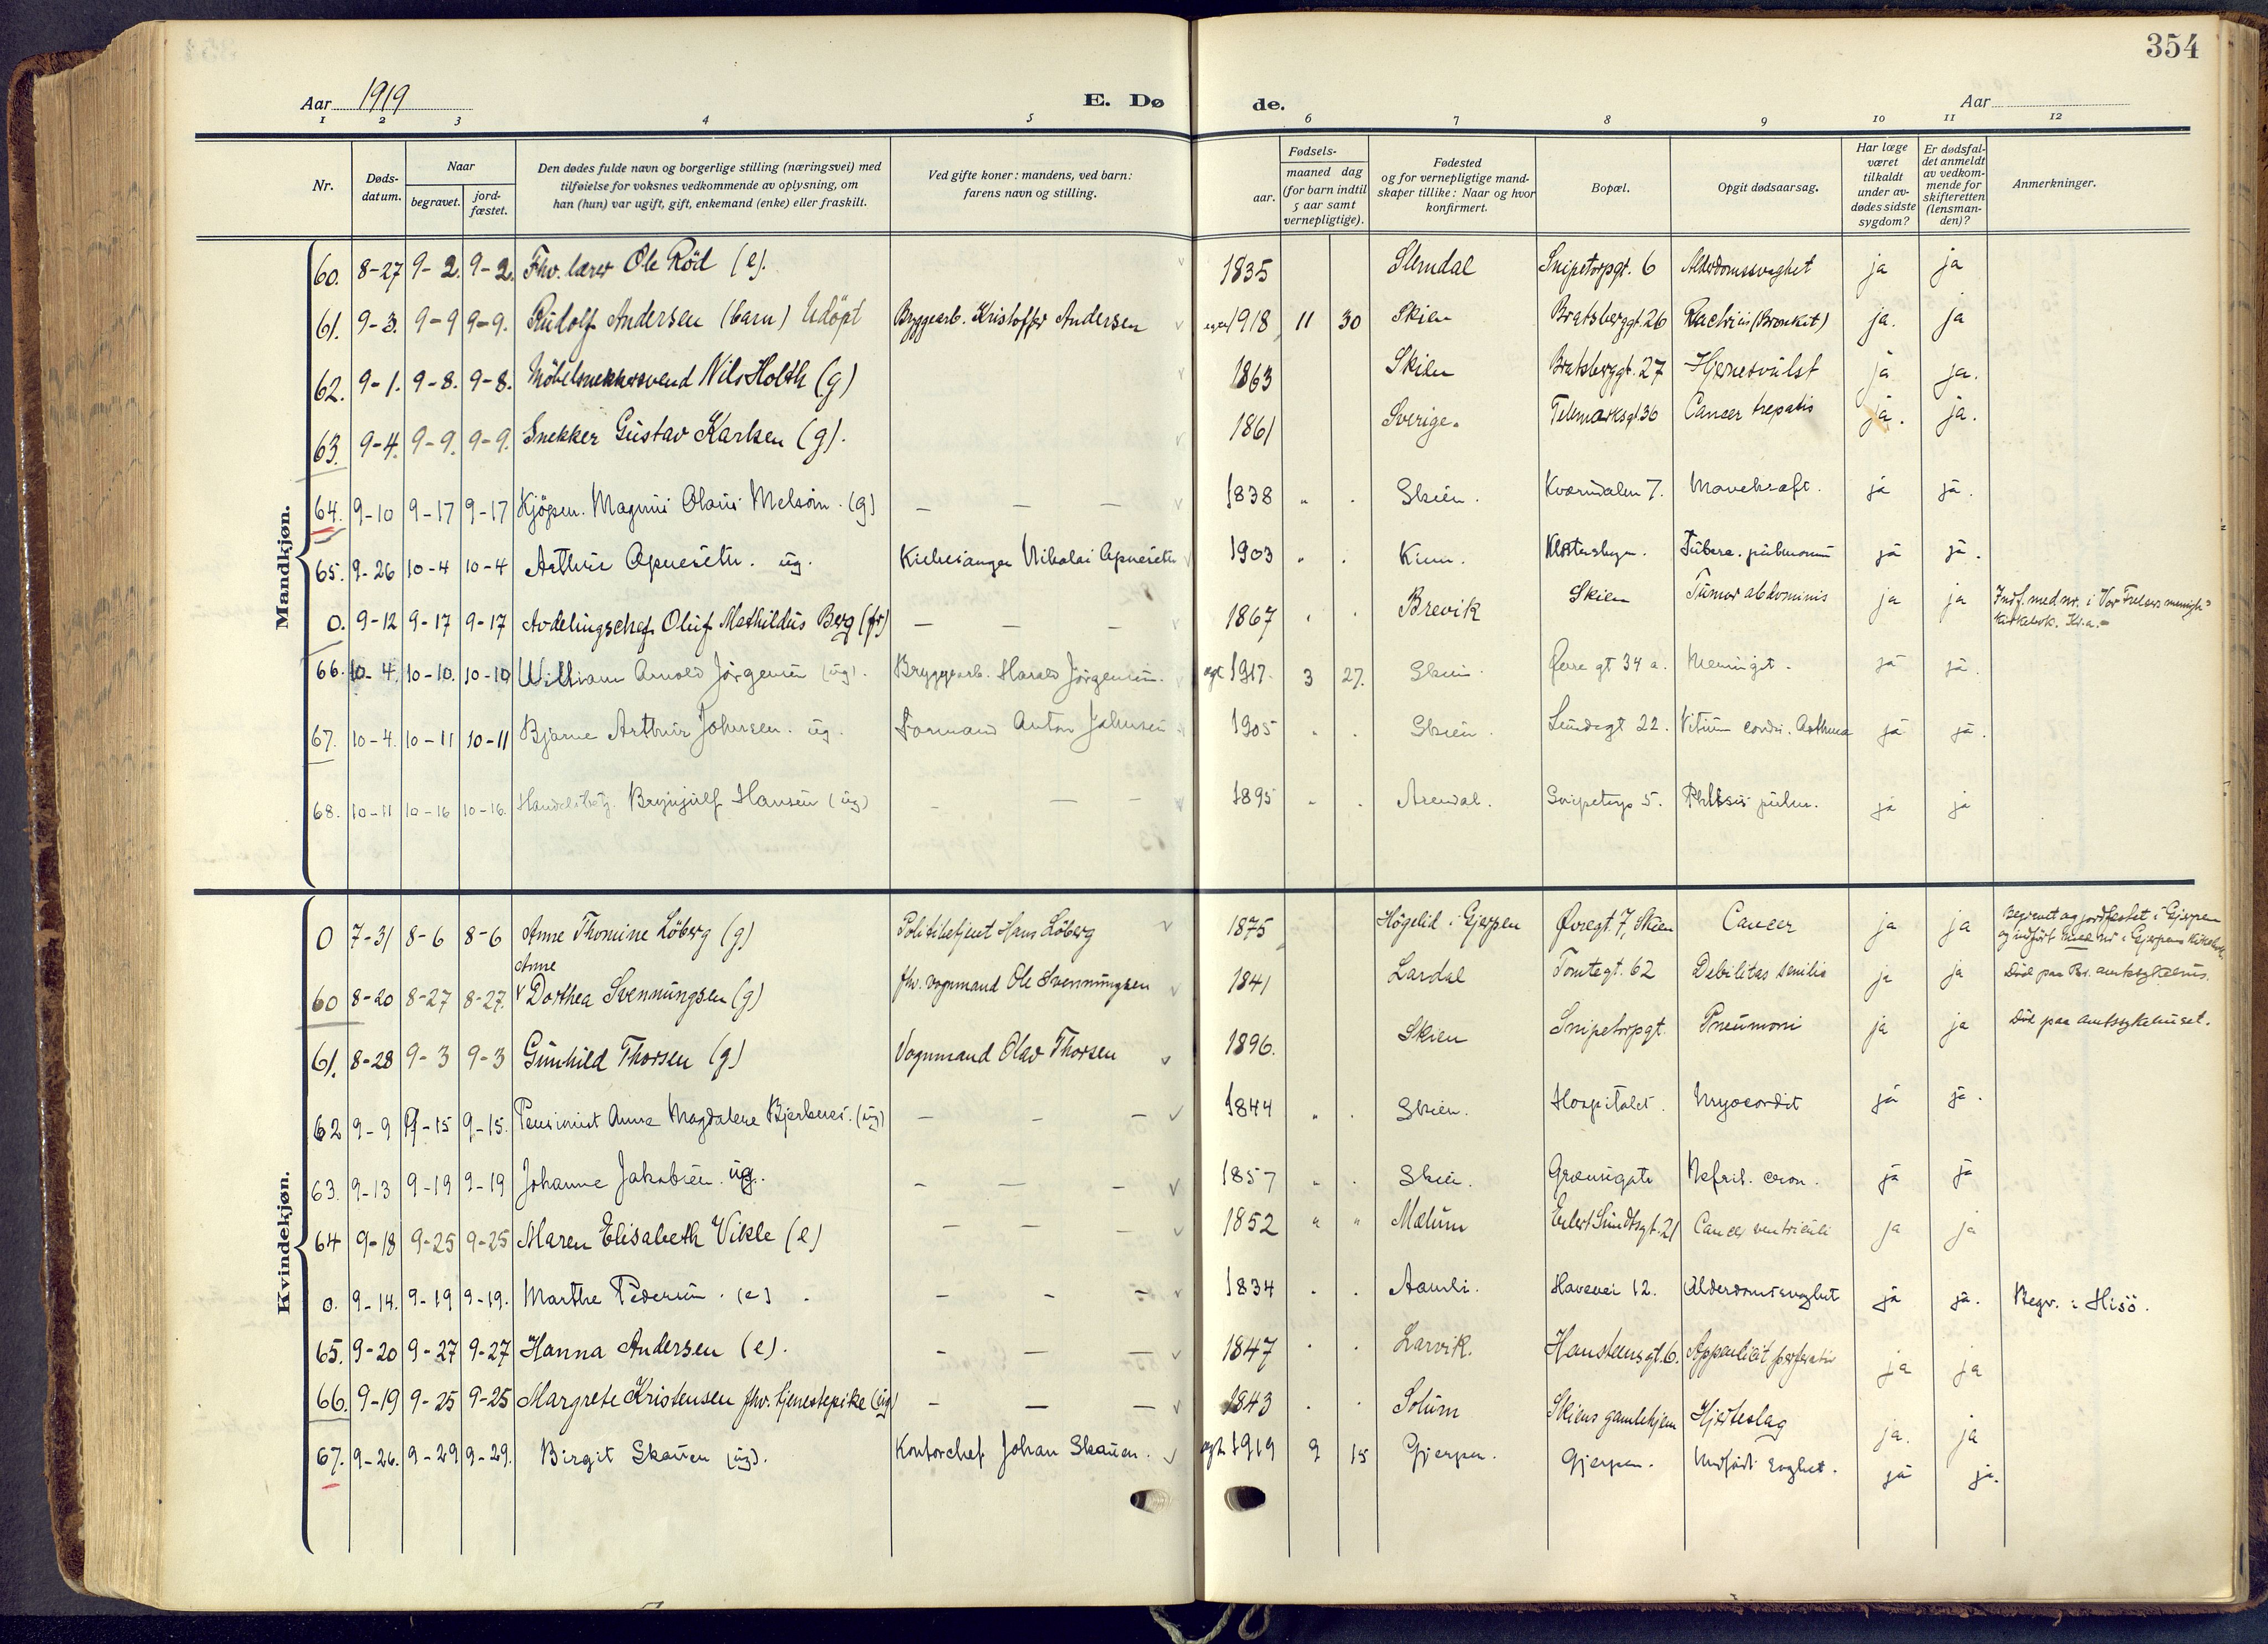 354
Aar 1919
E. Dø
de.
Aar
1 2 3 4 5 6 7 8 9 10 11 12
Nr.
Døds-
datum.
Naar
begravet.
jord-
fæstet.
Den dødes fulde navn og borgerlige stilling (næringsvei) med
tilføielse for voksnes vedkommende av oplysning, om
han (hun) var ugift, gift, enkemand (enke) eller fraskilt.
Ved gifte koner: mandens, ved barn:
farens navn og stilling.
Fødsels-
aar.
maaned dag
(for barn indtil
5 aar samt
vernepligtige).
Fødested
og for vernepligtige mand-
skaper tillike: Naar og hvor
konfirmert.
Bopæl.
Opgit dødsaarsag.
Har læge
været
tilkaldt
under av-
dødes sidste
sygdom?
Er dødsfal-
det anmeldt
av vedkom-
mende for
skifteretten
(lensman-
den)?
Anmerkninger.
Mandkjøn.
60. 8-27 9-2. 9-2. Fhv. lærer Ole Röd (e). 1835 Slemdal Snipetorpgt. 6 Alderdomssvaghet ja ja
61. 9-3. 9-9 9-9. Rudolf Andersen (barn) Udöpt Bryggearb. Kristoffer Andersen 1918 11 30 Skien Bratsberggt. 26 Rachitis (Bronkit) ja. ja
62. 9-1. 9-8. 9-8. Möbelsnekkersvend Nils Holth (g) 1863 Skien Bratsberggt. 27 Hjernesvulst ja ja.
63. 9-4. 9-9. 9-9. Snekker Gustav Karlsen (g). 1861 Sverige. Telemarksgt 36 Cancer hepatis ja. ja.
64. 9-10 9-17 9-17 Kjöpm. Magnus Olaus Melsom. (g) — — — 1838 " . Skien. Kværndalen 7. Mavekræft. ja ja.
65. 9-26 10-4 10-4 Arthur ug. Kirkesanger Nikolai 1903 " . Klosterskogen. Tuberc. pulmonum ja ja.
0. 9-12 9-17 9-17 Avdelingschef Oluf Mathildus Berg (fr) — — — 1867 . . Brevik Skien Tumor abdominis ja ja Indf. med nr. i Vor Frelsers menigh=
kirkebok. Kr.a.=
66. 10-4. 10-10. 10-10 William Arnold Jörgensen (ug). Bryggearb. Harald Jörgensen. egt. 1917. 3 27. Skien. Øvre gt 34 a. Meningit. ja ja.
67. 10-4. 10-11 10-11 Bjarne Arthur Johnsen. ug. Formand Anton Johnsen 1905 " . Skien. Lundegt 22. Vitium cordis. Asthma ja ja.
68. 10-11 10-16 10-16. Handelsbetj. Brynjulf Hansen (ug) — — — 1895 " . Arendal. Snipetorp 5. Phthisis pulm. ja ja
Kvindekjøn.
0 7-31 8-6 8-6 Anne Thomine Löberg (g) Politibetjent Hans Löberg 1875 Högelid i Gjerpen Øvregt. 7, Skien Cancer ja ja Begravet og jordfestet i Gjerpen
og indført med nr i Gjerpens kirkebok.
Anne
60 8-20 8-27 8-27. v Dorthea Svenningsen (g) fhv. vognmand Ole Svenningsen 1841 Lardal Tomtegt. 62 Debilitas senilis ja ja Död paa Br. amtssykehus.
61. 8-28 9-3 9-3 Gunhild Thorsen (g) Vognmand Olav Thorsen 1896. Skien Snipetorpgt. Pneumoni ja ja Död paa amtssykehuset.
62 9-9 9-15 9-15. Pensionist Anne Magdalene (ug) — — — 1844 " . Skien. Hospitalet. Myocardit ja ja.
63. 9-13 9-19 9-19 Johanne Jakobsen. ug. — — — 1857 " . Skien. Grænsigata Nefrit. cron. ja ja
64 9-18 9-25 9-25 Maren Elisabeth Vikle (e) — — — 1852 " " Mælum Eilert Sundtsgt. 21 Cancer ventriculi ja ja
0. 9-14. 9-19 9-19. Marthe Pedersen. (e) — — — 1834 . . Aamli. Havevei 12. Alderdomssvaghet ja ja. Begr. i Hisö.
65. 9-20 9-27 9-27 Hanna Andersen (e). — — — 1847 . . Larvik. Hansteensgt. 6. Appendicit ja ja
66. 9-19 9-25 9-25 Margrete Kristensen fhv. tjenestepike (ug) — — — 1843 . . Solum Skiens gamlehjem Hjerteslag ja. ja
67. 9-26. 9-29 9-29. Birgit Skauen (ug). Kontorchef Johan Skauen. egt. 1919 9 15 Gjerpen. Gjerpen. Medfödt svaghet. ja ja.